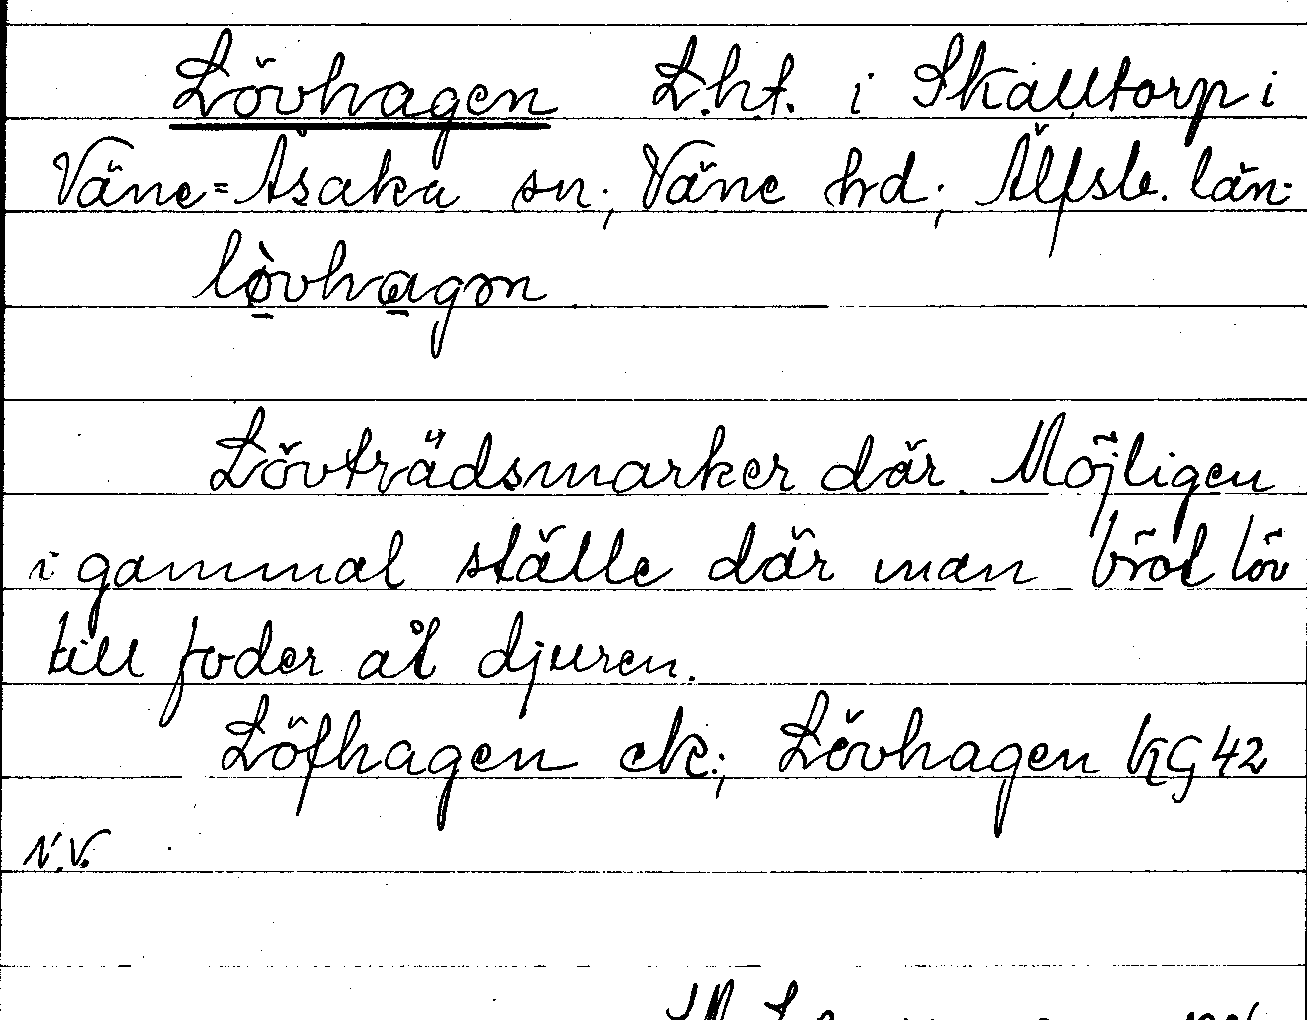 Lövhagen L.ht. i Skälltorp i
Väne=Åsaka sn; Väne hd; Älfsb. län.
lòvhagən
Lövträdsmarker där. Möjligen
i gammal ställe där man bröt löv
till foder åt djuren.
Löfhagen ek.; Lövhagen KG 42
N.V.